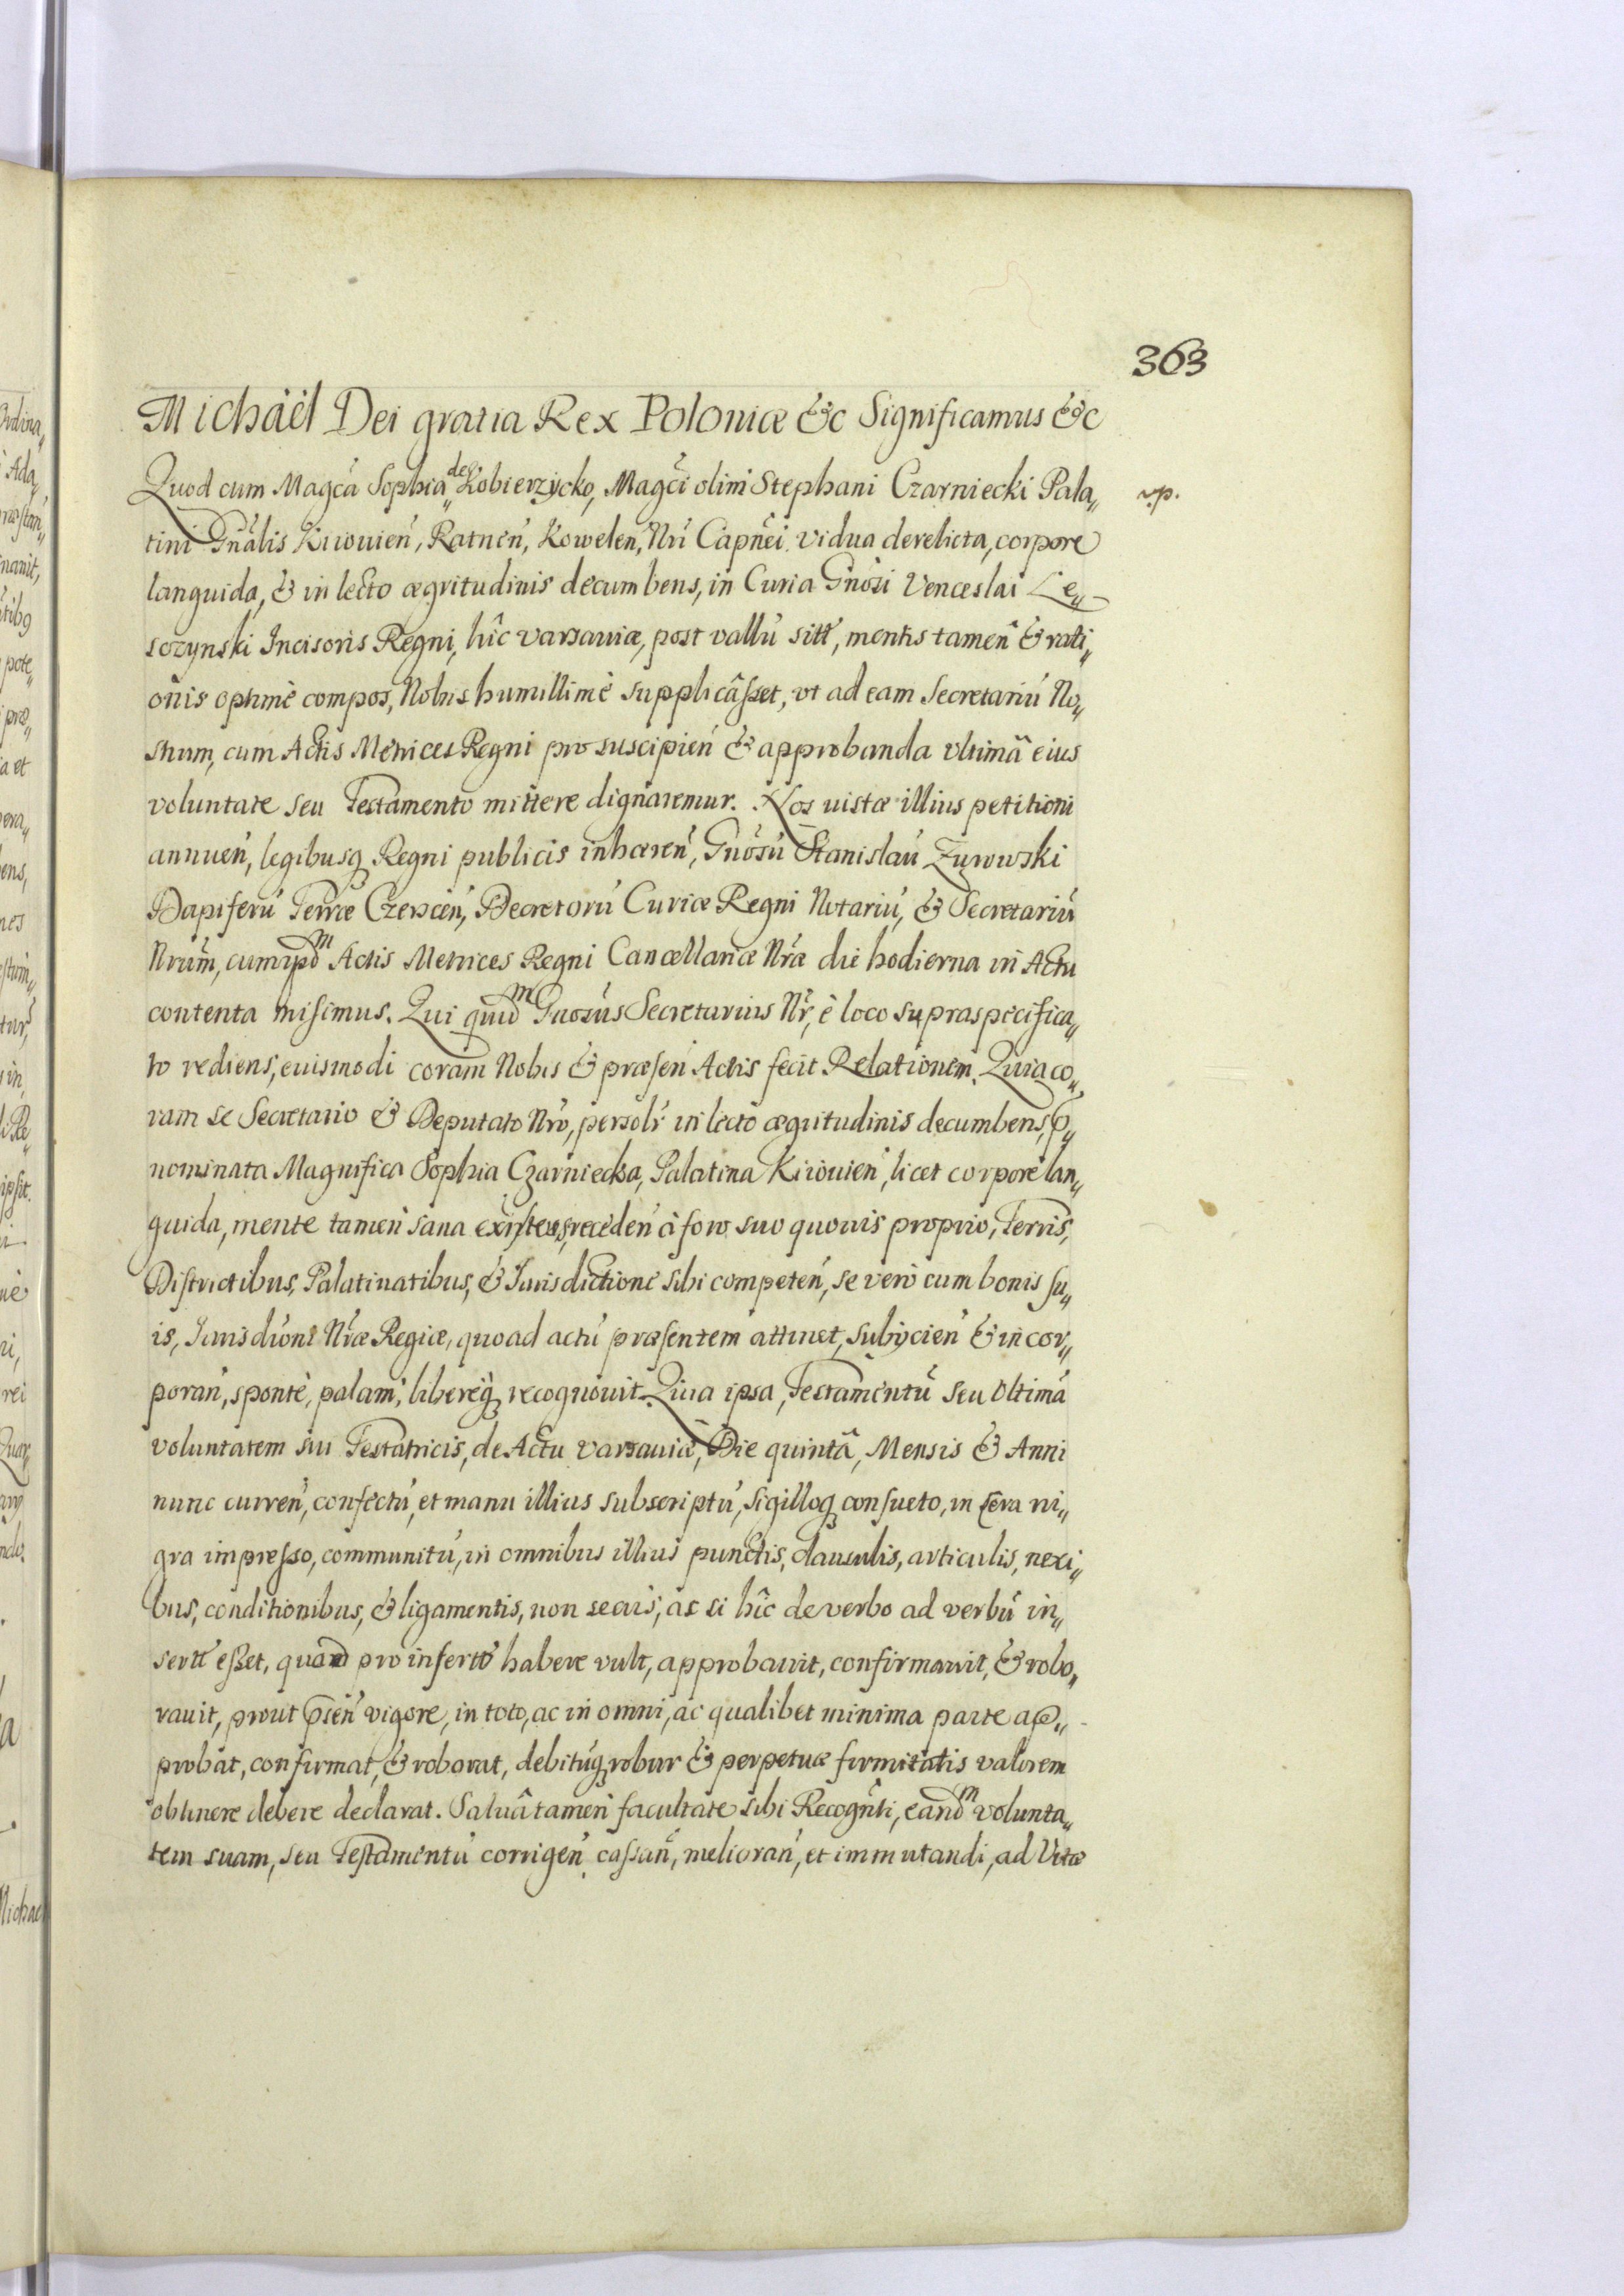 363
Michaël Dei gratia Rex Poloniæ &c Significamus &c
Quod cum Magcã Sophia de Kobierzycko, Magci olim Stephani Czarniecki Pala„
vp.
tini Gñalis Kiiouien, Ratnen, Kowelen, Nri Capñei vidua derelicta, corpore
languida, & in lecto ægritudinis decumbens, in Curia Gnosi Venceslai Le„
sczynski Incisoris Regni, hîc varsauiæ, post vallũ sitt, mentis tamen & rati„
onis optimè compos, Nobis humillimè supplicâsset, vt ad eam Secretariũ No„
strum, cum Actis Metrices Regni pro suscipien & approbanda vltimâ eius
voluntate seu Testamento mittere dignaremur. Nos iustæ illius petitioni
annuen, legibusq Regni publicis inhæren, Gnosũ Stanislaũ Zurowski
Dapiferũ Terræ Czerscen, Decretorũ Curiæ Regni Notariũ, & Secretariũ
Nrum, cum ipsdm Actis Metrices Regni Cancellariæ Nræ die hodierna in Actu
contenta misimus. Qui quidm Gnosus Secretarius Nr, è loco supraspecifica„
to rediens, euismodi coram Nobis & præsen Actis fecit Relationem. Quia co„
ram se Secretario & Deputato Nro, persolr in lecto ægritudinis decumbens, p„
nominata Magnifica Sophia Czarniecka, Palatina Kiiouien, licet corpore lan„
guida, mente tamen sana existens, receden à foro suo quouis proprio, Terris,
Districtibus, Palatinatibus, & Iurisdictione sibi competen, se verò cum bonis su„
is, Iurisdioni Nræ Regiæ, quoad actũ præsentem attinet, subijcien & incor„
poran, spontè, palam, libereq recognouit. Quia ipsa, Testamentũ seu Vltimã
voluntatem sui Testatricis, de Actu varsauiæ, Die quintâ, Mensis & Anni
nunc curren, confectũ, et manu illius subscriptũ, sigilloq consueto, in cera ni„
gra impresso, communitũ, in omnibus illius punctis, clausulis, articulis, nexi„
bus, conditionibus, & ligamentis, non secus, ac si hîc de verbo ad verbũ in„
sertt esset, quod pro insertto habere vult, approbauit, confirmauit, & robo„
rauit, prout psen vigore, in toto, ac in omni, ac qualibet minima parte ap„
probat, confirmat, & roborat, debitũq robur & perpetuæ firmitatis valorem
obtinere debere declarat. Saluâ tamen facultate sibi Recognti, eandm volunta„
tem suam, seu Testamentũ corrigen cassan, melioran, et immutandi, ad Vitæ